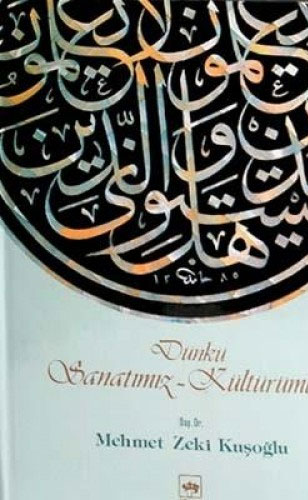 هل يستوى الذين يعلمون والذين لا يعلمون
١٢٨٥
Dunku
Sanatımız-Kültürümü
Doç. Dr.
Mehmet Zeki Kuşoğlu